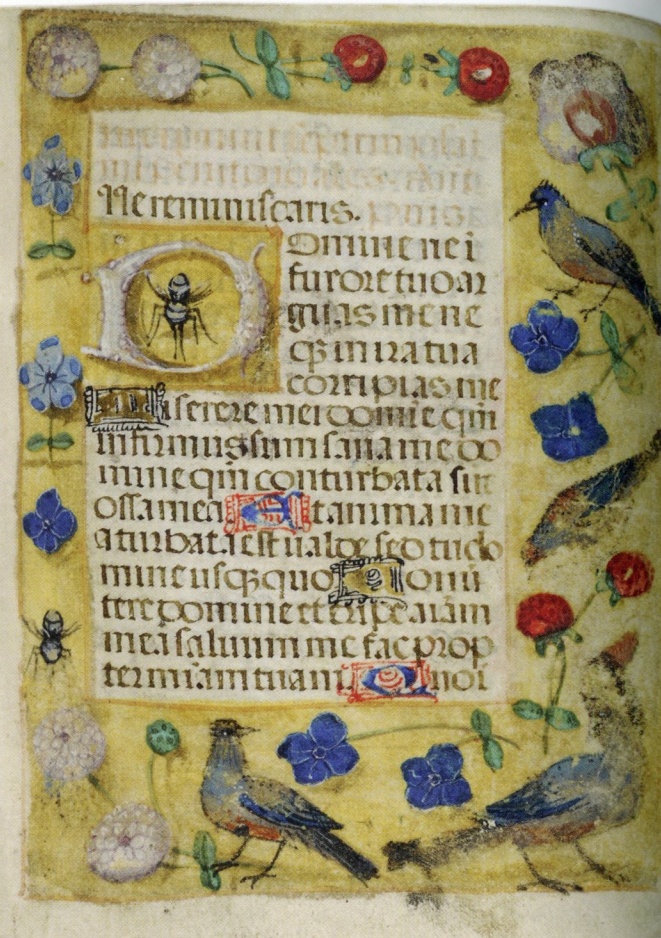 Ne reminiscaris.
Domine ne i
furore tuo ar
guas me ne
qꝫ in ira tua
corripias me
Miserere mei domīe qm̄
infirmus sum sana me do
mine qm̄ conturbata sūt
ossa mea Et anima me
a turbata est ualde sed tu do
mine usqꝫ quo Conu
tere domine et eripe aīam
meā saluum me fac prop
ter mīam tuam noī